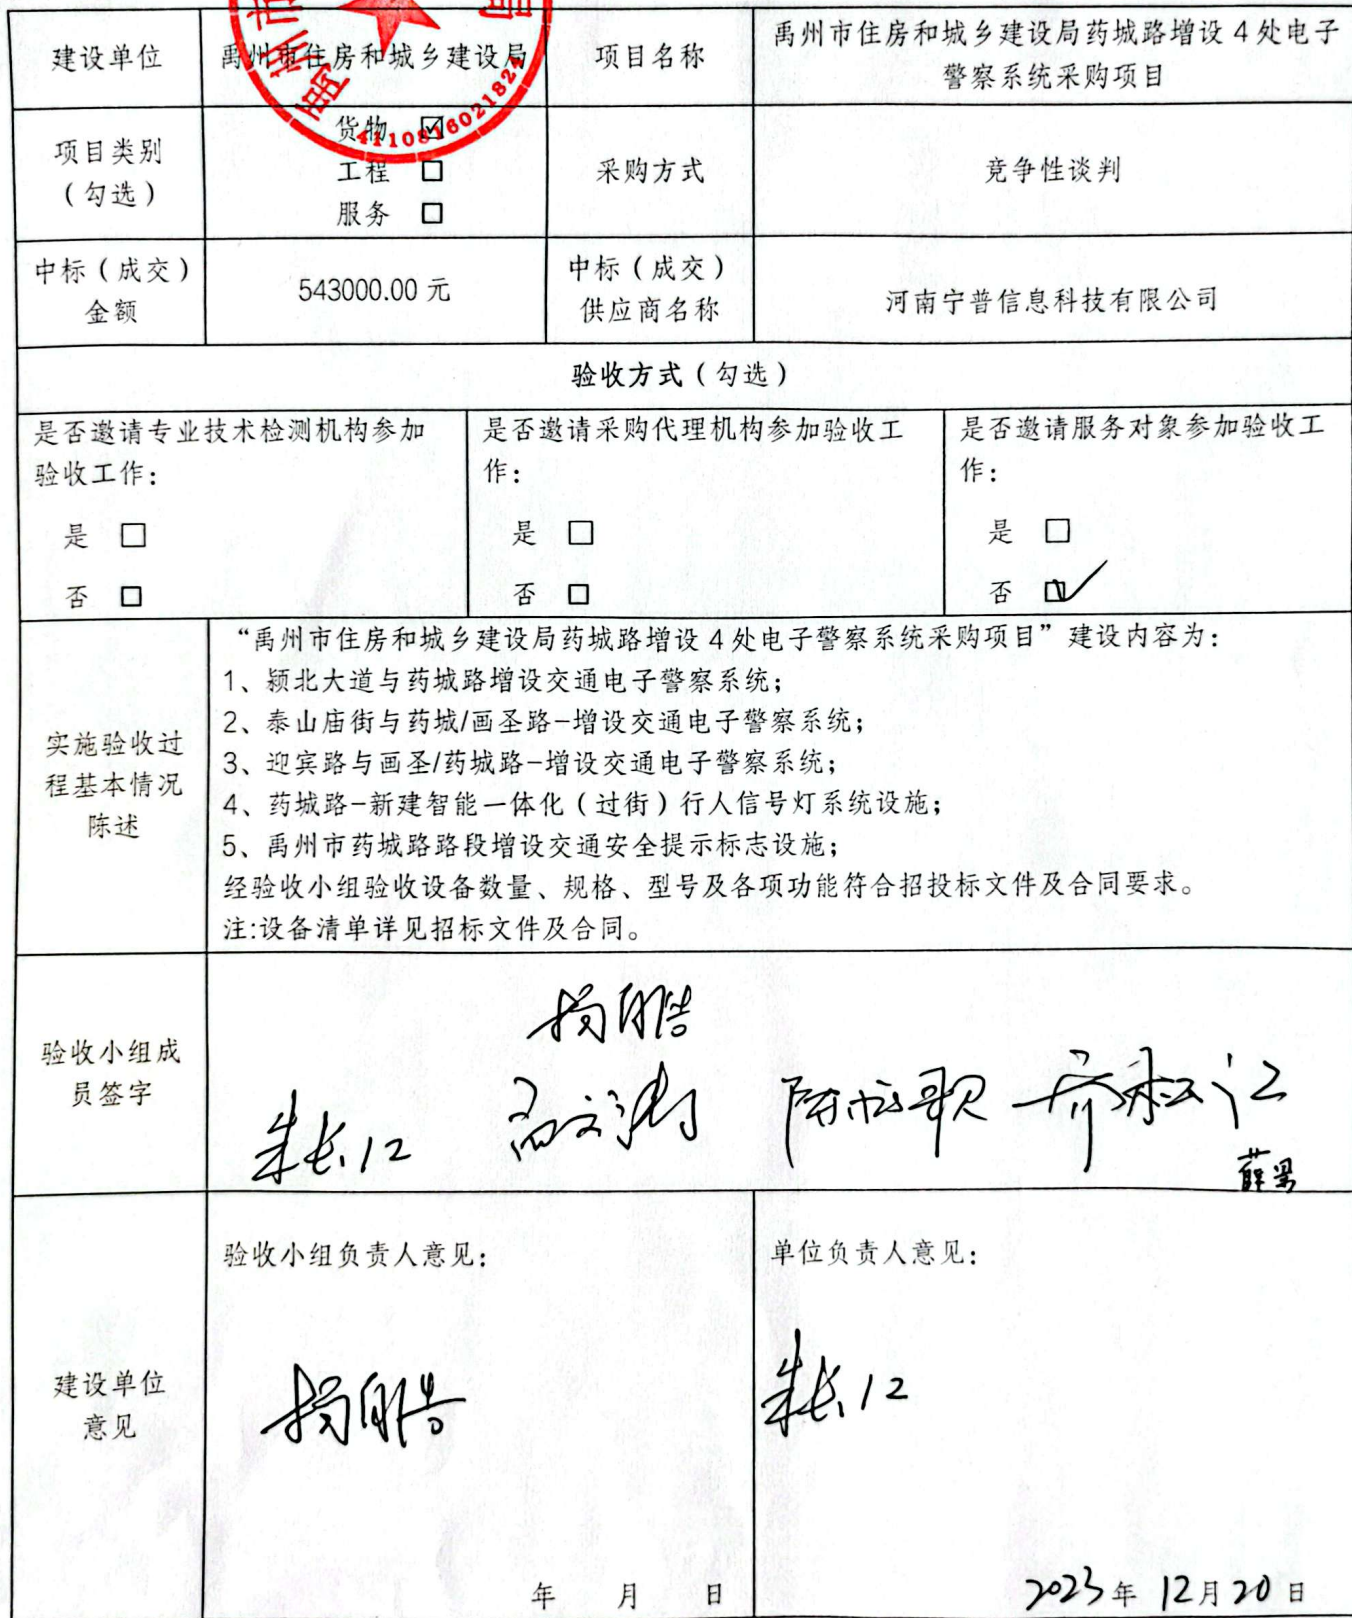 建设单位
禹州市住房和城乡建设局
项目名称
禹州市住房和城乡建设局药城路增设4处电子
警察系统采购项目
4110816021824
项目类别
（勾选）
货物 ☑
工程 □
服务 □
采购方式
竞争性谈判
中标（成交）
金额
543000.00 元
中标（成交）
供应商名称
河南宁普信息科技有限公司
验收方式（勾选）
是否邀请专业技术检测机构参加
验收工作：
是 □
否 □
是否邀请采购代理机构参加验收工
作：
是 □
否 □
是否邀请服务对象参加验收工
作：
是 □
否 ☑
实施验收过
程基本情况
陈述
“禹州市住房和城乡建设局药城路增设4处电子警察系统采购项目”建设内容为：
1、颍北大道与药城路增设交通电子警察系统；
2、泰山庙街与药城/画圣路-增设交通电子警察系统；
3、迎宾路与画圣/药城路-增设交通电子警察系统；
4、药城路-新建智能一体化（过街）行人信号灯系统设施；
5、禹州市药城路路段增设交通安全提示标志设施；
经验收小组验收设备数量、规格、型号及各项功能符合招投标文件及合同要求。
注:设备清单详见招标文件及合同。
验收小组成
员签字
建设单位
意见
验收小组负责人意见：
年 月 日
单位负责人意见：
2023年 12月20日